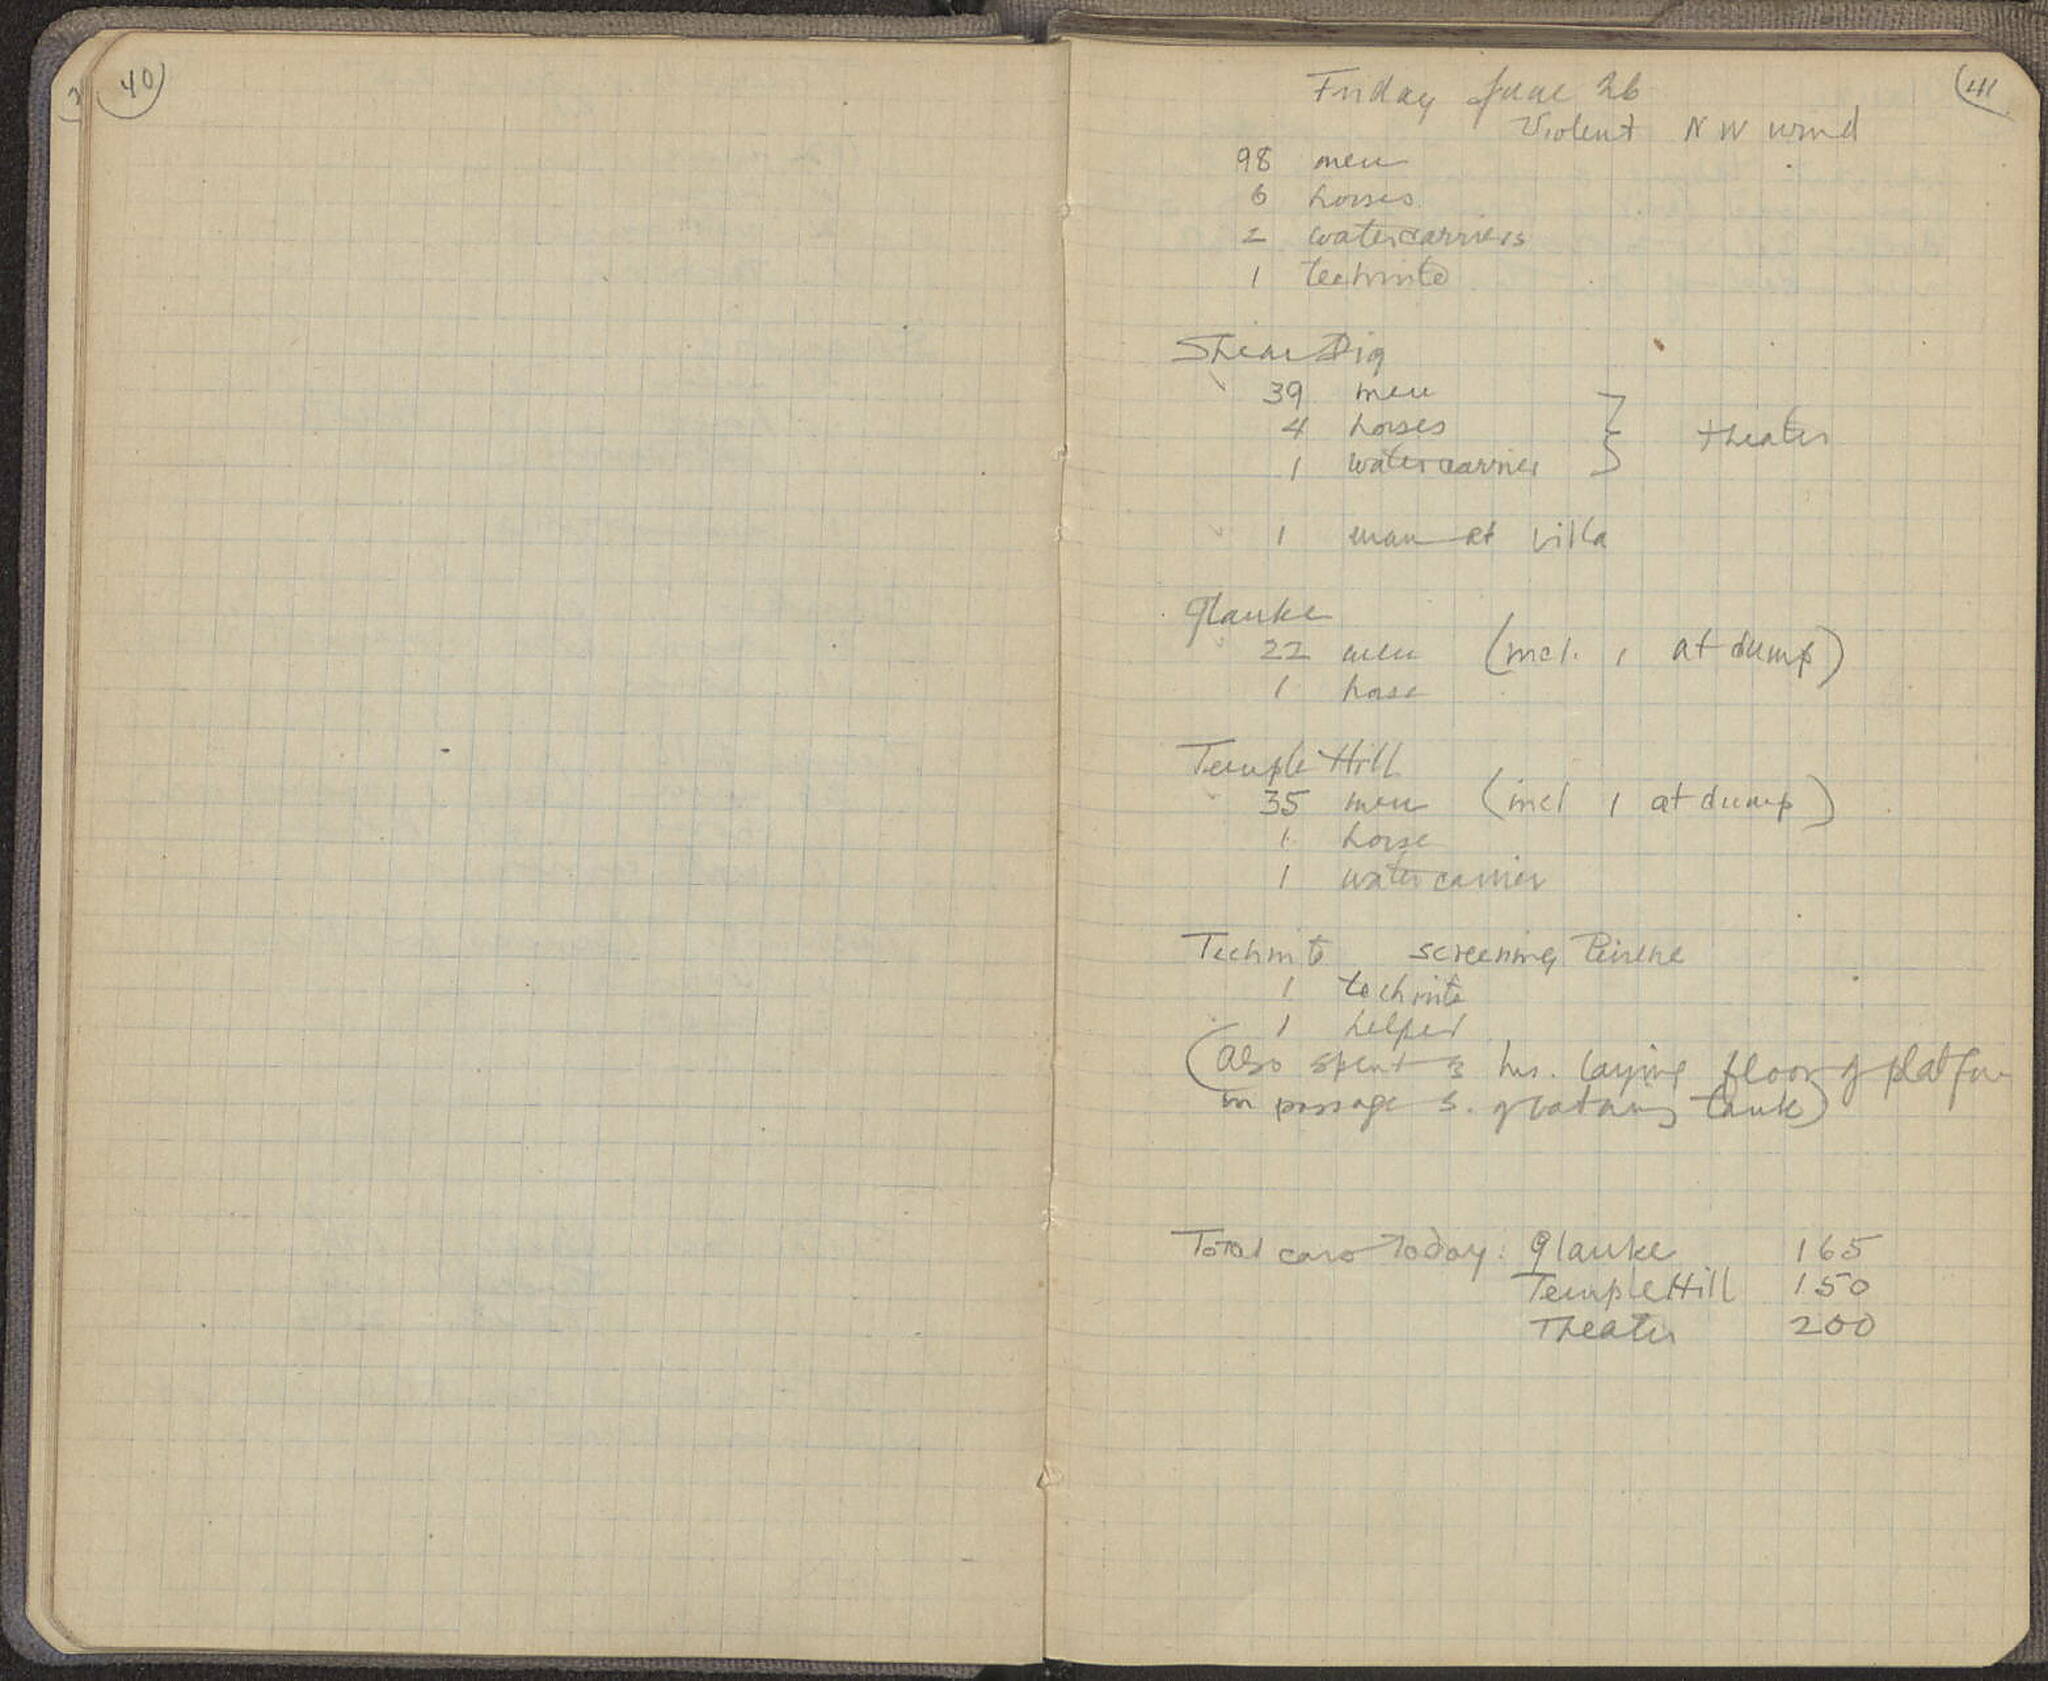 40
41
Friday June 26
Violent N W wind
98 men
6 horses
2 watercarriers
1 technite
Shear Dig
39 men
4 horses
1 watercarrier
theater
1 man at villa
Glauke
22 men (incl. 1 at dump)
1 horse
Temple Hill
35 men (incl 1 at dump)
1 horse
1 watercarrier
Technite screening Peirene
1 technite
1 helper
(also spent 3 hrs. laying floor of platform
in passage S. of bathing tank)
Total cars today: Glauke 165
Temple Hill 150
Theater 200